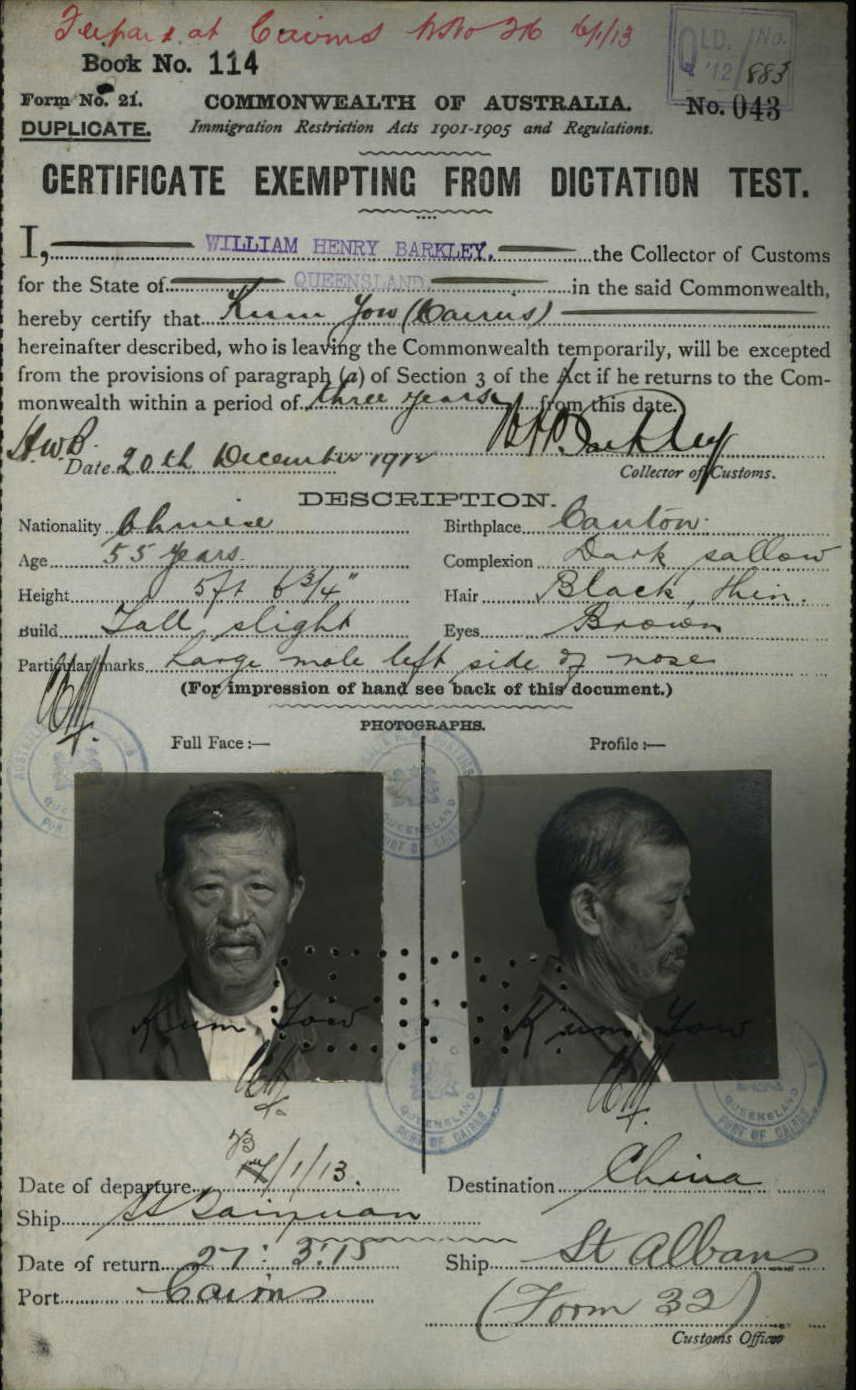 at Cairns No 26 6/1/13
Book No. 114
QLD. No.
'12 883
Form No. 21.
COMMONWEALTH OF AUSTRALIA.
No. 043
DUPLICATE.
Immigration Restriction Acts 1901-1905 and Regulations.
CERTIFICATE EXEMPTING FROM DICTATION TEST.
I, WILLIAM HENRY BARKLEY, the Collector of Customs
for the State of QUEENSLAND. in the said Commonwealth,
hereby certify that Kum Yow (Cairns)
hereinafter described, who is leaving the Commonwealth temporarily, will be excepted
from the provisions of paragraph (a) of Section 3 of the Act if he returns to the Com-
monwealth within a period of three years from this date.
H.W.B. WHBarkley
Date 20th December 1912 Collector of Customs.
DESCRIPTION.
Nationality Chinese Birthplace Canton
Age 55 years. Complexion Dark sallow
Height 5ft 6¾" Hair Black, thin.
Build Tall, slight Eyes Brown
Particular marks Large mole left side of nose
(For impression of hand see back of this document.)
PHOTOGRAPHS.
Full Face :— Profile :—
QUEENSLAND
PORT OF
Kum Yow Kum Yow
QUEENSLAND
PORT OF CAIRNS
QUEENSLAND
PORT OF
Date of departure /1/13. Destination China
Ship SS Taiyuan
Date of return 27: 3.15 Ship St Albans
Port Cairns (Form 32)
Customs Officer